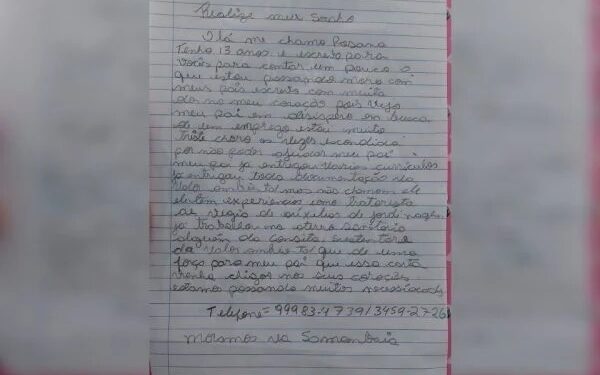 Realize meu Sonho
Olá me chamo Rosana
Tenho 13 anos e escrevo para
vocês para contar um pouco o
que estou passando moro com
meus pais escrevo com muita
dor no meu coração pois vejo
meu pai em desespero em busca
de um emprego estou muito
triste choro as vezes escondida
por não poder ajudar meu pai
meu pai ja entregou varios currículos
ja entregou toda documentação na
Valor ambiental mas não chamam ele
ele tem experiencias como tratorista
de vigia de auxilios de jardinagem
ja trabalhou no aterro sanitário
alguem da
da Valor ambiental que de uma
força para meu pai que essa carta
venha chegar nos seus corações
estamos passando muitas necessidades
Telefone = 99983-4739 / 3459-2726
moramos na Samambaia